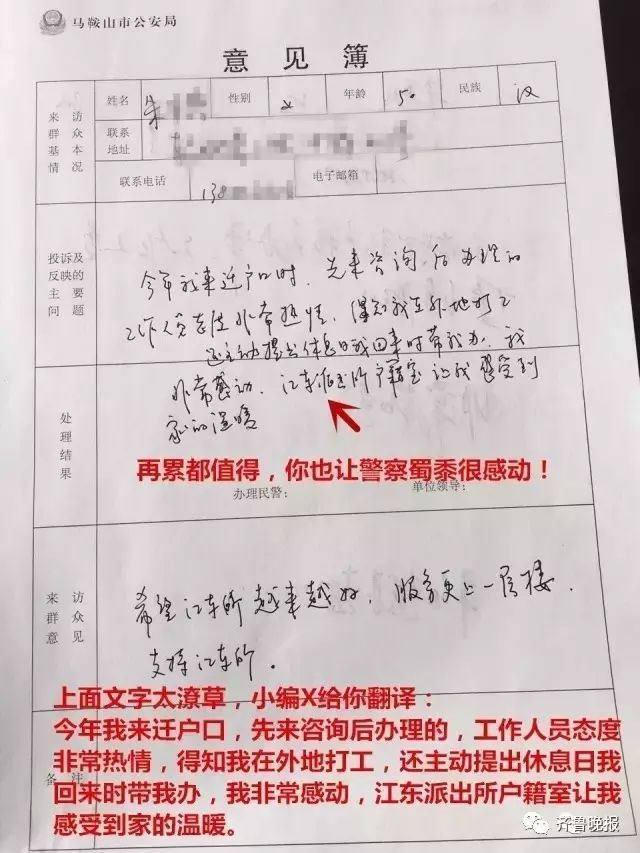 马鞍山市公安局
意见簿
来访群众基本情况
姓名 朱 性别 女 年龄 50 民族 汉
联系地址
联系电话 138 电子邮箱
投诉及反映的主要问题
今年我来迁户口时，先来咨询后办理的
工作人员态度非常热情，得知我在外地打工
还主动提出休息日我回来时带我办，我
非常感动，江东派出所户籍室让我感受到
家的温暖
处理结果
再累都值得，你也让警察蜀黍很感动！
办理民警： 单位领导：
来访群众意见
希望江东所越来越好，服务更上一层楼，
支持江东所．
上面文字太潦草，小编X给你翻译：
今年我来迁户口，先来咨询后办理的，工作人员态度
非常热情，得知我在外地打工，还主动提出休息日我
回来时带我办，我非常感动，江东派出所户籍室让我
感受到家的温暖。
备注
齐鲁晚报